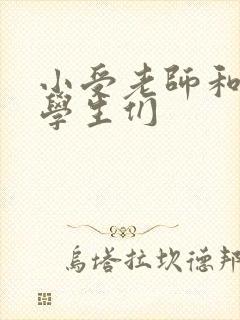 小受老師和
學生们
烏塔拉坎德邦